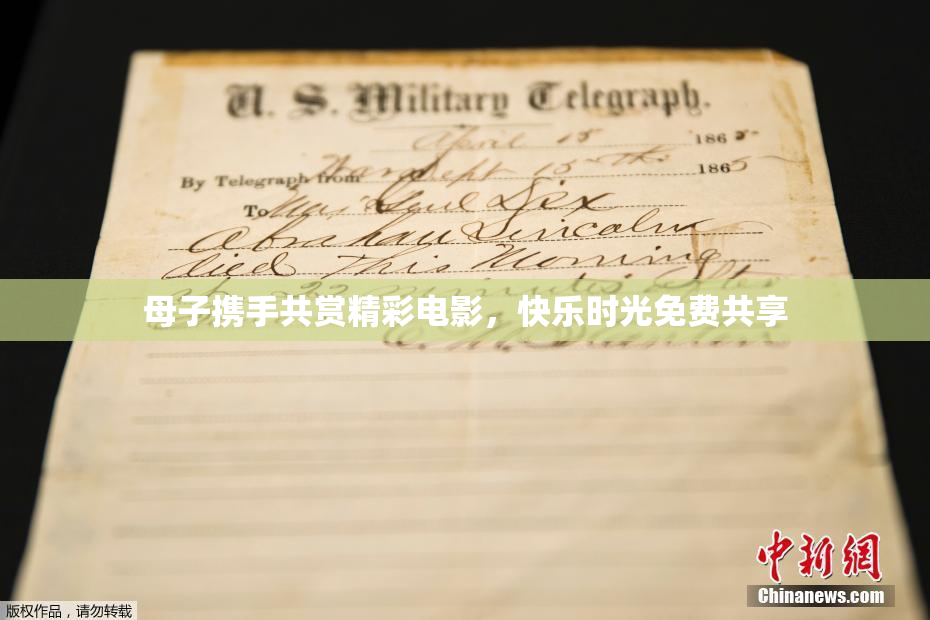 U. S. Military Telegraph.
April 15 1865
By Telegraph from War Dept 15th 1865
To Maj Genl Dix
Abraham Lincoln
died This Morning
22 minutes after
母子携手共赏精彩电影，快乐时光免费共享
E. M. Stanton
中新網
Chinanews.com
版权作品，请勿转载